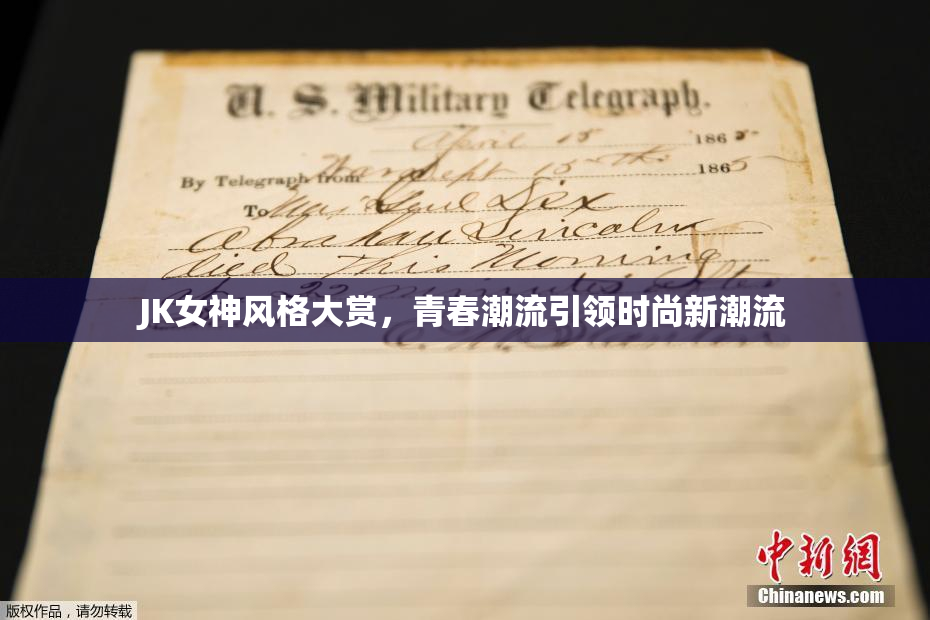 U. S. Military Telegraph.
April 15 1865
By Telegraph from War Dept 15th 1865
To Maj Genl Dix
Abraham Lincoln
died This Morning
at 22 minutes after
JK女神风格大赏，青春潮流引领时尚新潮流
中新網
Chinanews.com
版权作品，请勿转载